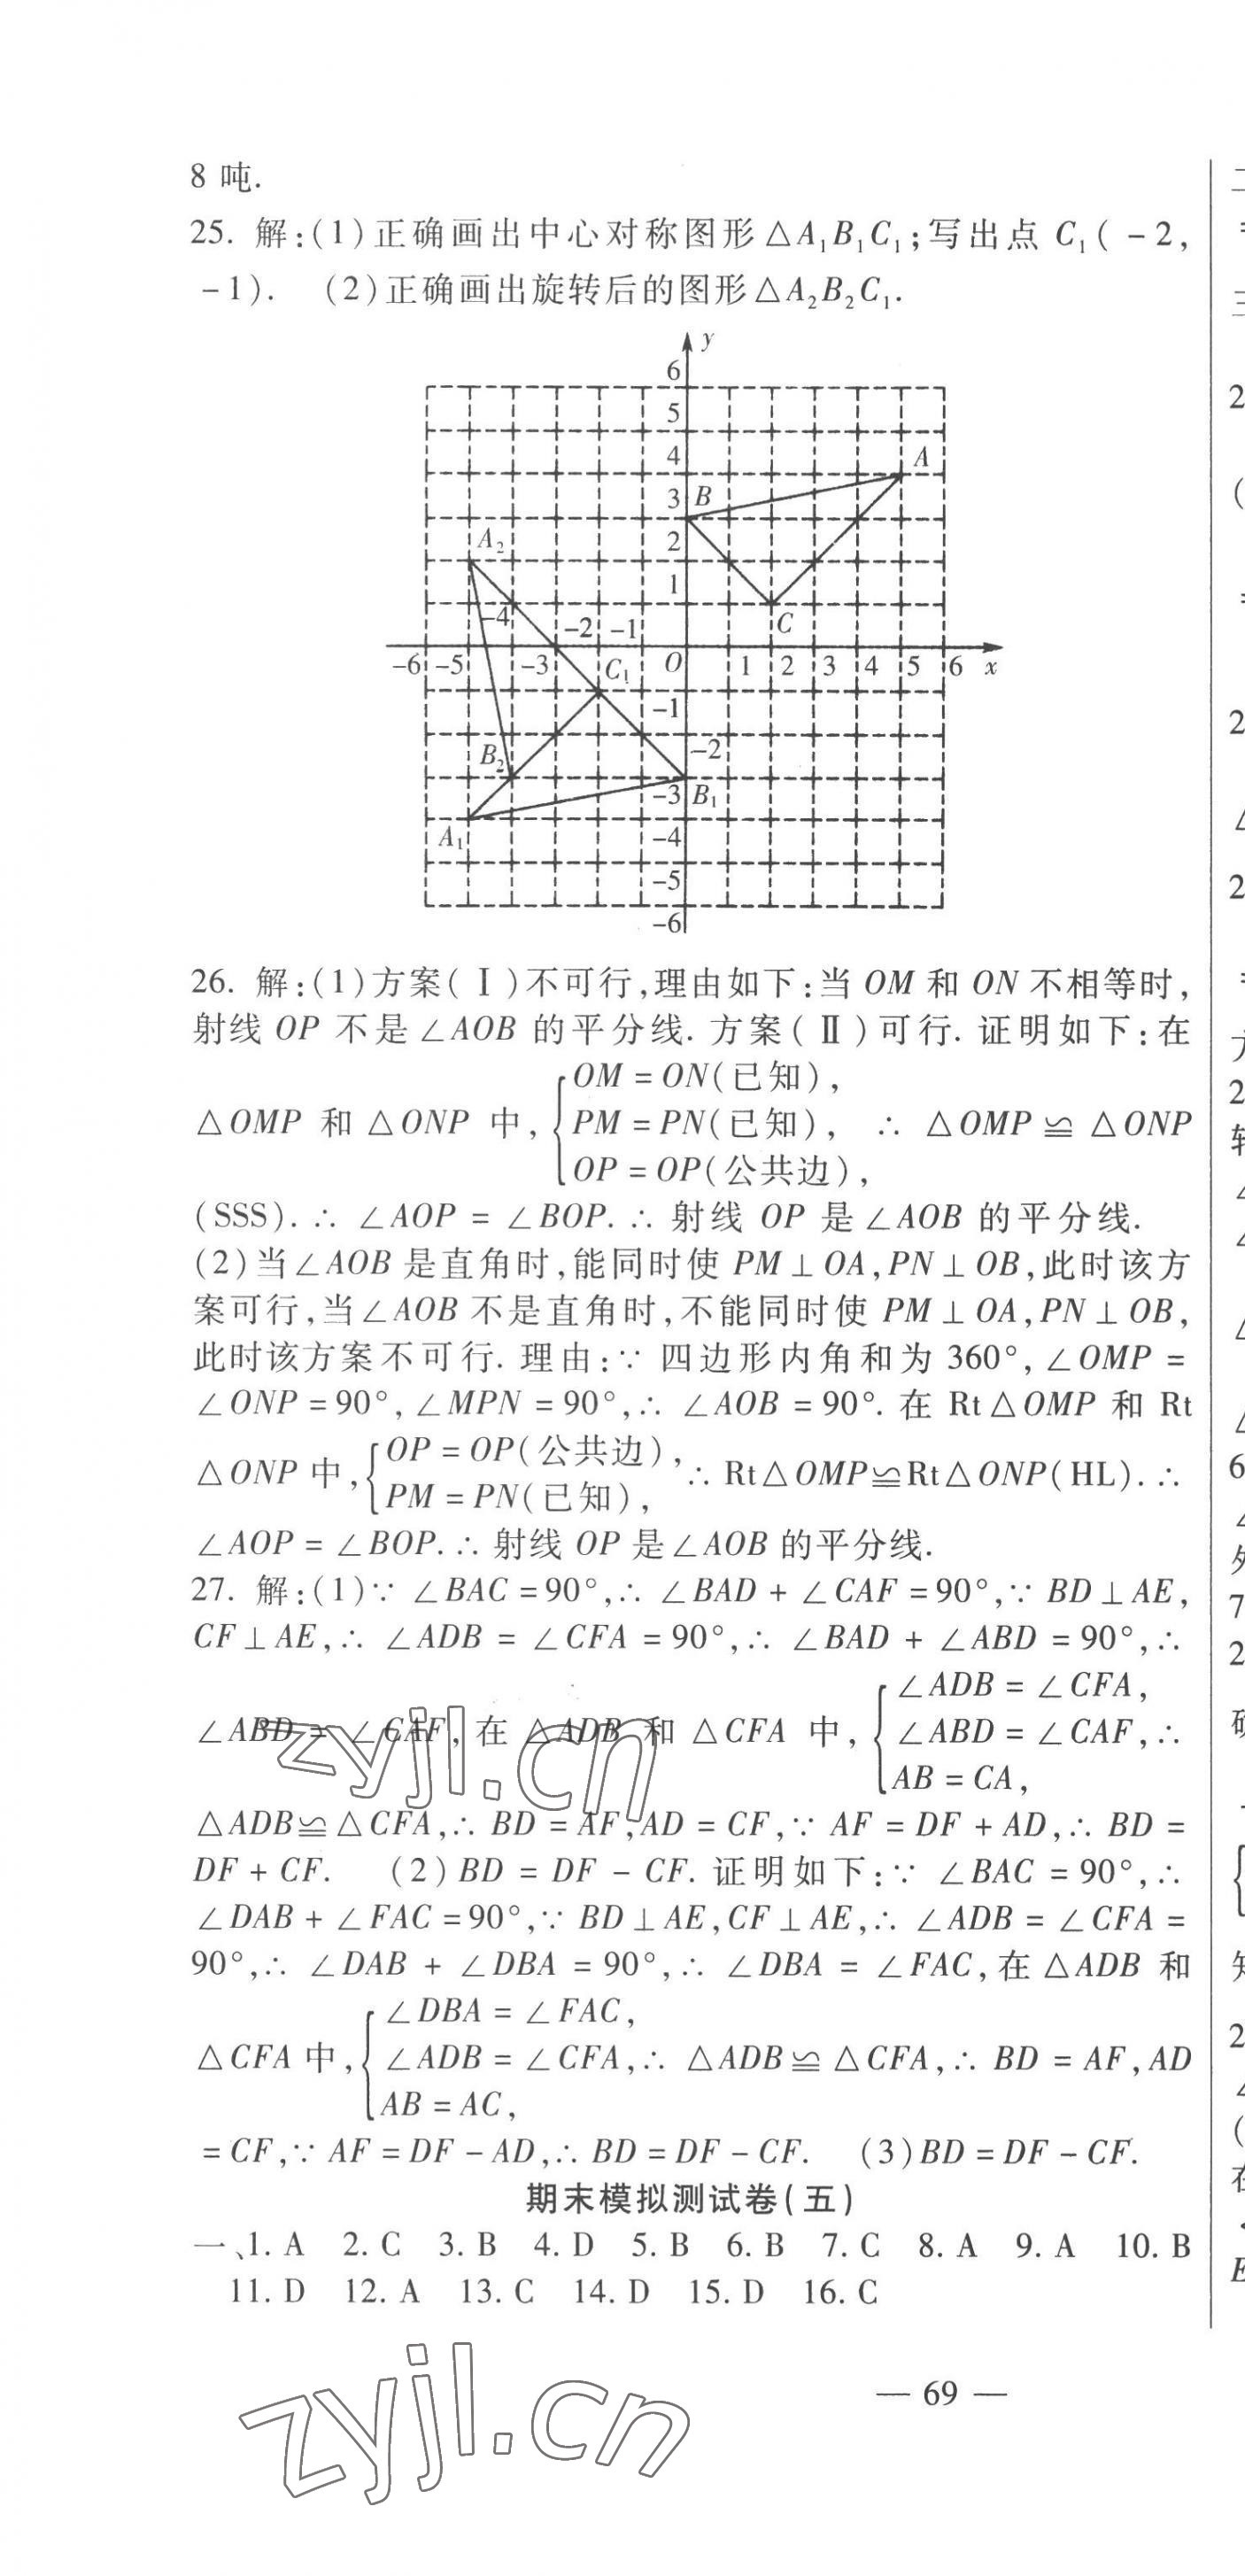 8 吨.
25. 解:(1)正确画出中心对称图形△A₁B₁C₁;写出点 C₁( -2,
-1). (2)正确画出旋转后的图形△A₂B₂C₁.
y
6
5
4
A
3 B
A₂
2
1
-4
-2 -1
C
-6 -5 -3 C₁ O 1 2 3 4 5 6 x
-1
B₂
-2
-3 B₁
A₁
-4
-5
-6
26. 解:(1)方案(Ⅰ)不可行,理由如下:当 OM 和 ON 不相等时,
射线 OP 不是∠AOB 的平分线. 方案(Ⅱ)可行. 证明如下:在
OM = ON(已知),
△OMP 和 △ONP 中, PM = PN(已知), ∴ △OMP≌△ONP
OP = OP(公共边),
(SSS). ∴ ∠AOP = ∠BOP. ∴ 射线 OP 是∠AOB 的平分线.
(2)当∠AOB 是直角时,能同时使 PM⊥OA,PN⊥OB,此时该方
案可行,当∠AOB 不是直角时,不能同时使 PM⊥OA,PN⊥OB,
此时该方案不可行. 理由:∵ 四边形内角和为 360°,∠OMP =
∠ONP = 90°,∠MPN = 90°,∴ ∠AOB = 90°. 在 Rt△OMP 和 Rt
OP = OP(公共边),
△ONP 中, ∴ Rt△OMP≌Rt△ONP(HL). ∴
PM = PN(已知),
∠AOP = ∠BOP. ∴ 射线 OP 是∠AOB 的平分线.
27. 解:(1)∵ ∠BAC = 90°,∴ ∠BAD + ∠CAF = 90°,∵ BD⊥AE,
CF⊥AE,∴ ∠ADB = ∠CFA = 90°,∴ ∠BAD + ∠ABD = 90°,∴
∠ADB = ∠CFA,
∠ABD = ∠CAF, 在 △ADB 和 △CFA 中, ∠ABD = ∠CAF,∴
AB = CA,
△ADB≌△CFA,∴ BD = AF,AD = CF,∵ AF = DF + AD,∴ BD =
DF + CF. (2)BD = DF - CF. 证明如下:∵ ∠BAC = 90°,∴
∠DAB + ∠FAC = 90°,∵ BD⊥AE,CF⊥AE,∴ ∠ADB = ∠CFA =
90°,∴ ∠DAB + ∠DBA = 90°,∴ ∠DBA = ∠FAC,在△ADB 和
∠DBA = ∠FAC,
△CFA 中, ∠ADB = ∠CFA,∴ △ADB≌△CFA,∴ BD = AF,AD
AB = AC,
= CF,∵ AF = DF - AD,∴ BD = DF - CF. (3)BD = DF - CF.
期末模拟测试卷(五)
一、1. A 2. C 3. B 4. D 5. B 6. B 7. C 8. A 9. A 10. B
11. D 12. A 13. C 14. D 15. D 16. C
— 69 —
zyjl.cn
zyjl.cn